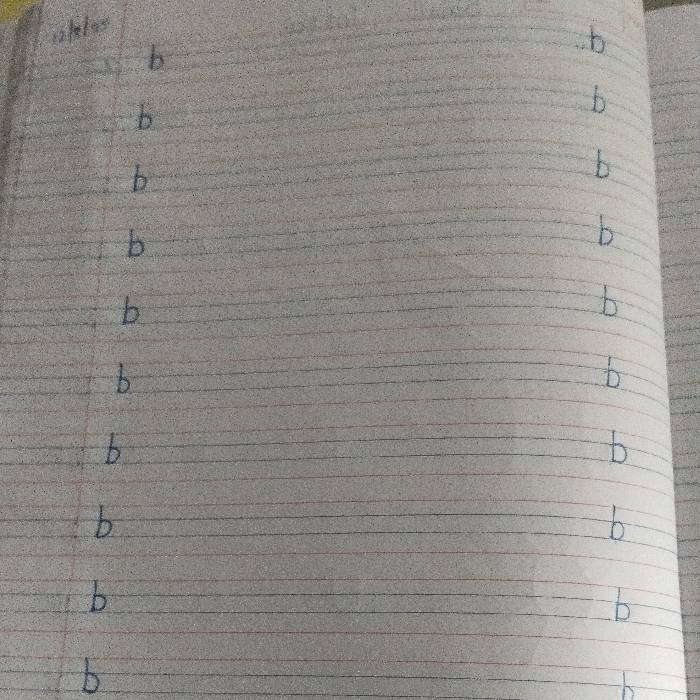 b b
b b
b b
b b
b b
b b
b b
b b
b b
b b